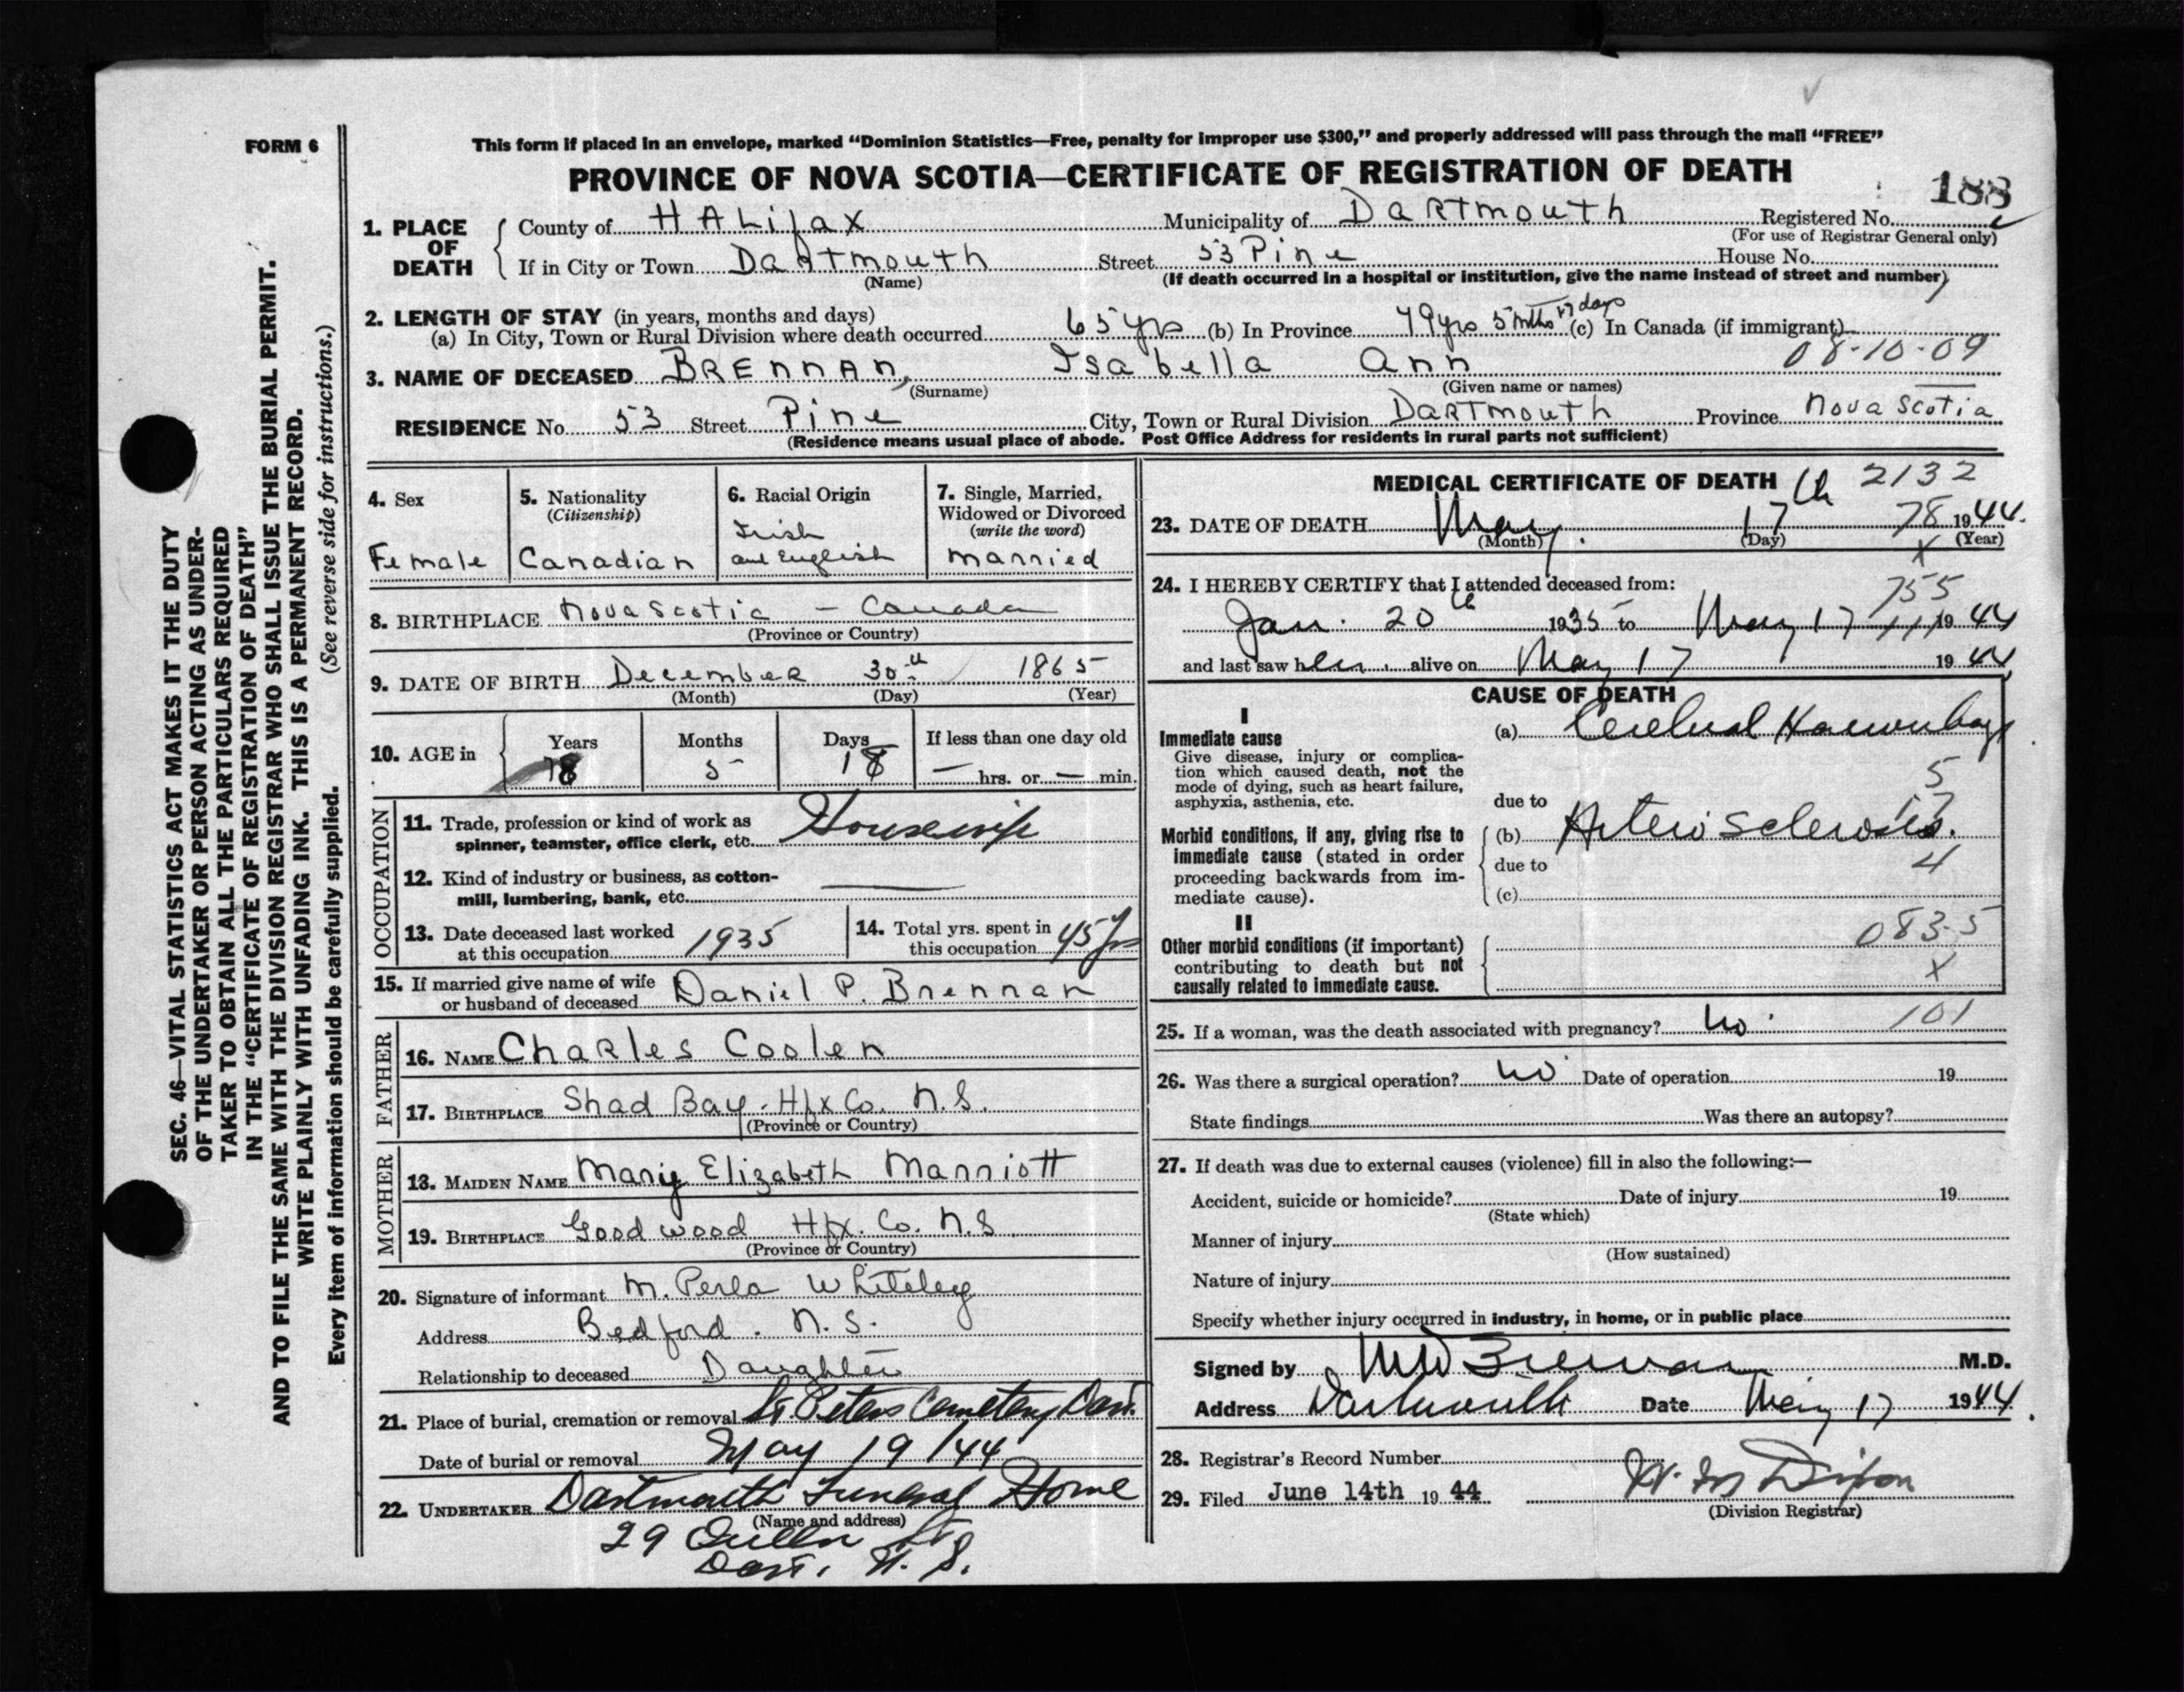 FORM 6
This form if placed in an envelope, marked “Dominion Statistics—Free, penalty for improper use $300,” and properly addressed will pass through the mail “FREE”
PROVINCE OF NOVA SCOTIA—CERTIFICATE OF REGISTRATION OF DEATH
188
1. PLACE OF DEATH
County of HALifax Municipality of DaRTmouth Registered No.
(For use of Registrar General only)
If in City or Town DaRTmouth Street 53 Pine House No.
(Name) (If death occurred in a hospital or institution, give the name instead of street and number)
2. LENGTH OF STAY (in years, months and days)
(a) In City, Town or Rural Division where death occurred 65 yrs (b) In Province 79 yrs 5 mths 17 days (c) In Canada (if immigrant)
08-10-09
3. NAME OF DECEASED BREnnAn, Isabella Ann
(Surname) (Given name or names)
RESIDENCE No. 53 Street Pine City, Town or Rural Division DaRTmouth Province Nova Scotia
(Residence means usual place of abode. Post Office Address for residents in rural parts not sufficient)
4. Sex
Female
5. Nationality
(Citizenship)
Canadian
6. Racial Origin
Irish
and English
7. Single, Married,
Widowed or Divorced
(write the word)
married
8. BIRTHPLACE Nova Scotia — Canada
(Province or Country)
9. DATE OF BIRTH December 30th 1865
(Month) (Day) (Year)
10. AGE in
Years Months Days If less than one day old
78 5 18 — hrs. or — min.
OCCUPATION
11. Trade, profession or kind of work as
spinner, teamster, office clerk, etc. Housewife
12. Kind of industry or business, as cotton-
mill, lumbering, bank, etc. —
13. Date deceased last worked
at this occupation 1935
14. Total yrs. spent in
this occupation 45 yrs
15. If married give name of wife
or husband of deceased Daniel P. Brennan
FATHER
16. NAME Charles Coolen
17. BIRTHPLACE Shad Bay. Hfx Co. N.S.
(Province or Country)
MOTHER
18. MAIDEN NAME Mary Elizabeth Marriott
19. BIRTHPLACE Goodwood Hfx. Co. N.S
(Province or Country)
20. Signature of informant M. Perla Whiteley
Address Bedford. N.S.
Relationship to deceased Daughter
21. Place of burial, cremation or removal St. Peters Cemetery Dart.
Date of burial or removal May 19/44
22. UNDERTAKER Dartmouth Funeral Home
(Name and address)
29 Queen St
Dart. N.S.
MEDICAL CERTIFICATE OF DEATH
2132
23. DATE OF DEATH May 17th 1944.
(Month) (Day) (Year)
78
X
24. I HEREBY CERTIFY that I attended deceased from:
755
Jan. 20th 1935 to May 17 1944
111
and last saw her alive on May 17 1944
CAUSE OF DEATH
I
Immediate cause
Give disease, injury or complica-
tion which caused death, not the
mode of dying, such as heart failure,
asphyxia, asthenia, etc.
(a) Cerebral Haemorrhage
5
due to
Morbid conditions, if any, giving rise to
immediate cause (stated in order
proceeding backwards from im-
mediate cause).
(b) Arterio Sclerosis.
due to
4
(c)
II
Other morbid conditions (if important)
contributing to death but not
causally related to immediate cause.
083.5
X
25. If a woman, was the death associated with pregnancy? No.
101
26. Was there a surgical operation? No Date of operation 19
State findings Was there an autopsy?
27. If death was due to external causes (violence) fill in also the following:—
Accident, suicide or homicide? Date of injury 19
(State which)
Manner of injury
(How sustained)
Nature of injury
Specify whether injury occurred in industry, in home, or in public place
Signed by Brennan M.D.
Address Dartmouth Date May 17 1944.
28. Registrar's Record Number
29. Filed June 14th 1944 Dixon
(Division Registrar)
SEC. 46—VITAL STATISTICS ACT MAKES IT THE DUTY
OF THE UNDERTAKER OR PERSON ACTING AS UNDER-
TAKER TO OBTAIN ALL THE PARTICULARS REQUIRED
IN THE “CERTIFICATE OF REGISTRATION OF DEATH”
AND TO FILE THE SAME WITH THE DIVISION REGISTRAR WHO SHALL ISSUE THE BURIAL PERMIT.
WRITE PLAINLY WITH UNFADING INK. THIS IS A PERMANENT RECORD.
Every item of information should be carefully supplied. (See reverse side for instructions.)